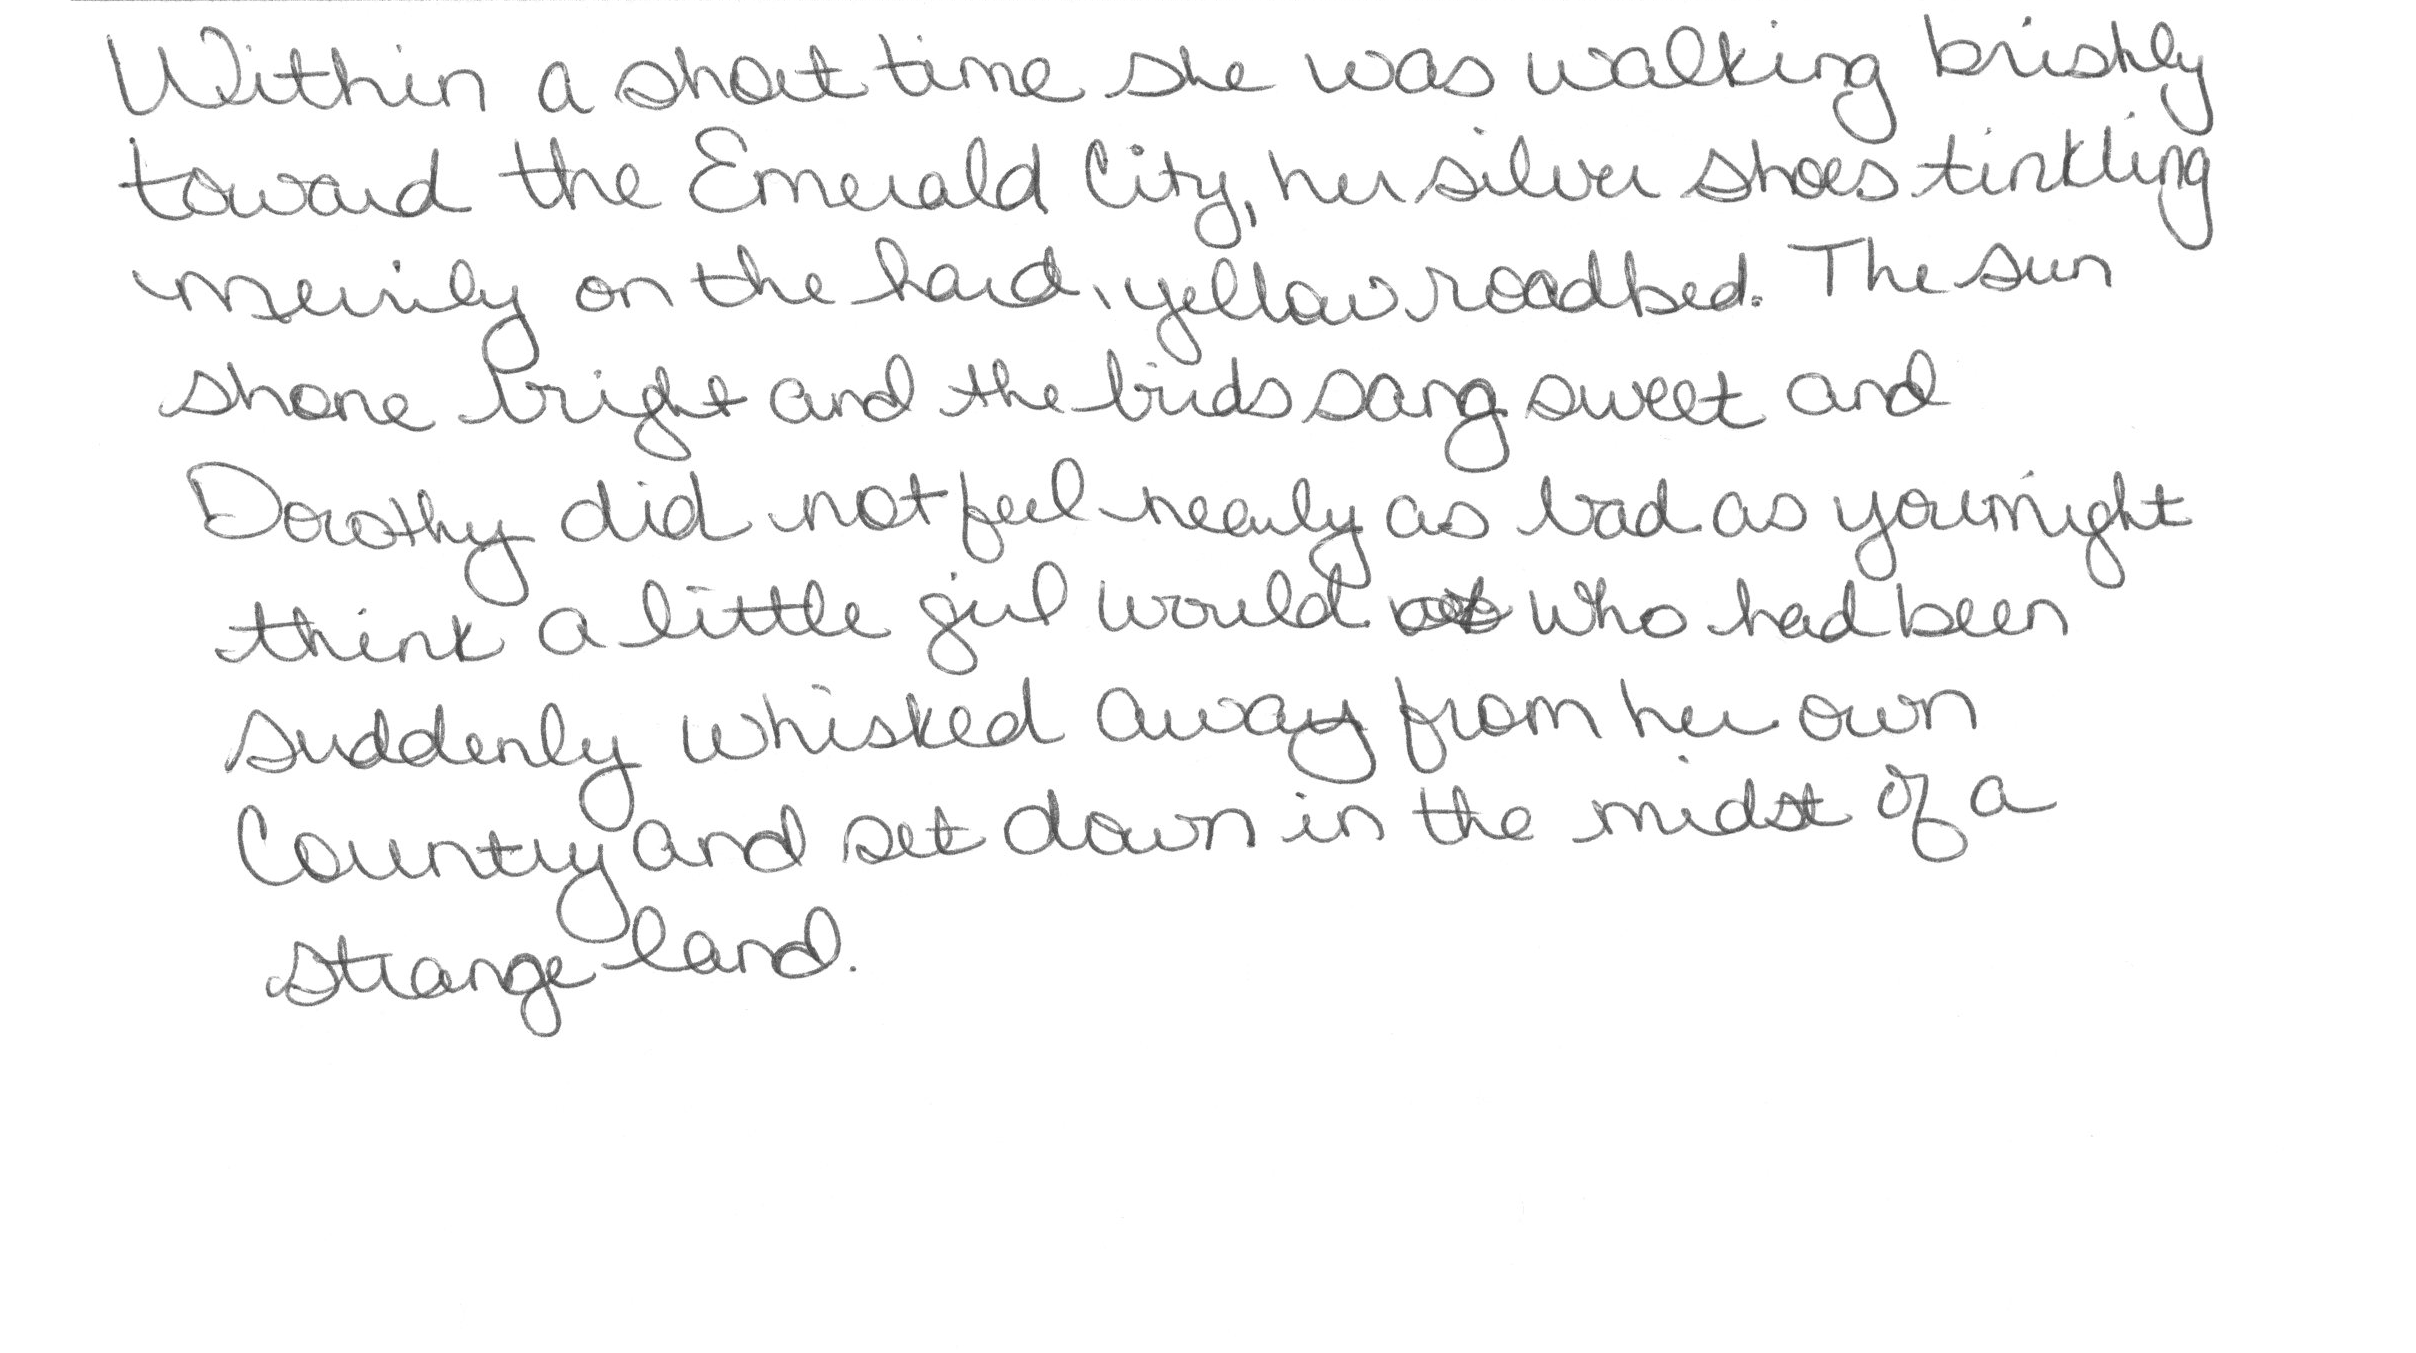 Within a short time she was walking briskly
toward the Emerald City, her silver shoes tinkling
merrily on the hard, yellow roadbed. The sun
shone bright and the birds sang sweet and
Dorothy did not feel nearly as bad as you might
think a little girl would who had been
suddenly whisked away from her own
Country and set down in the midst of a
strange land.